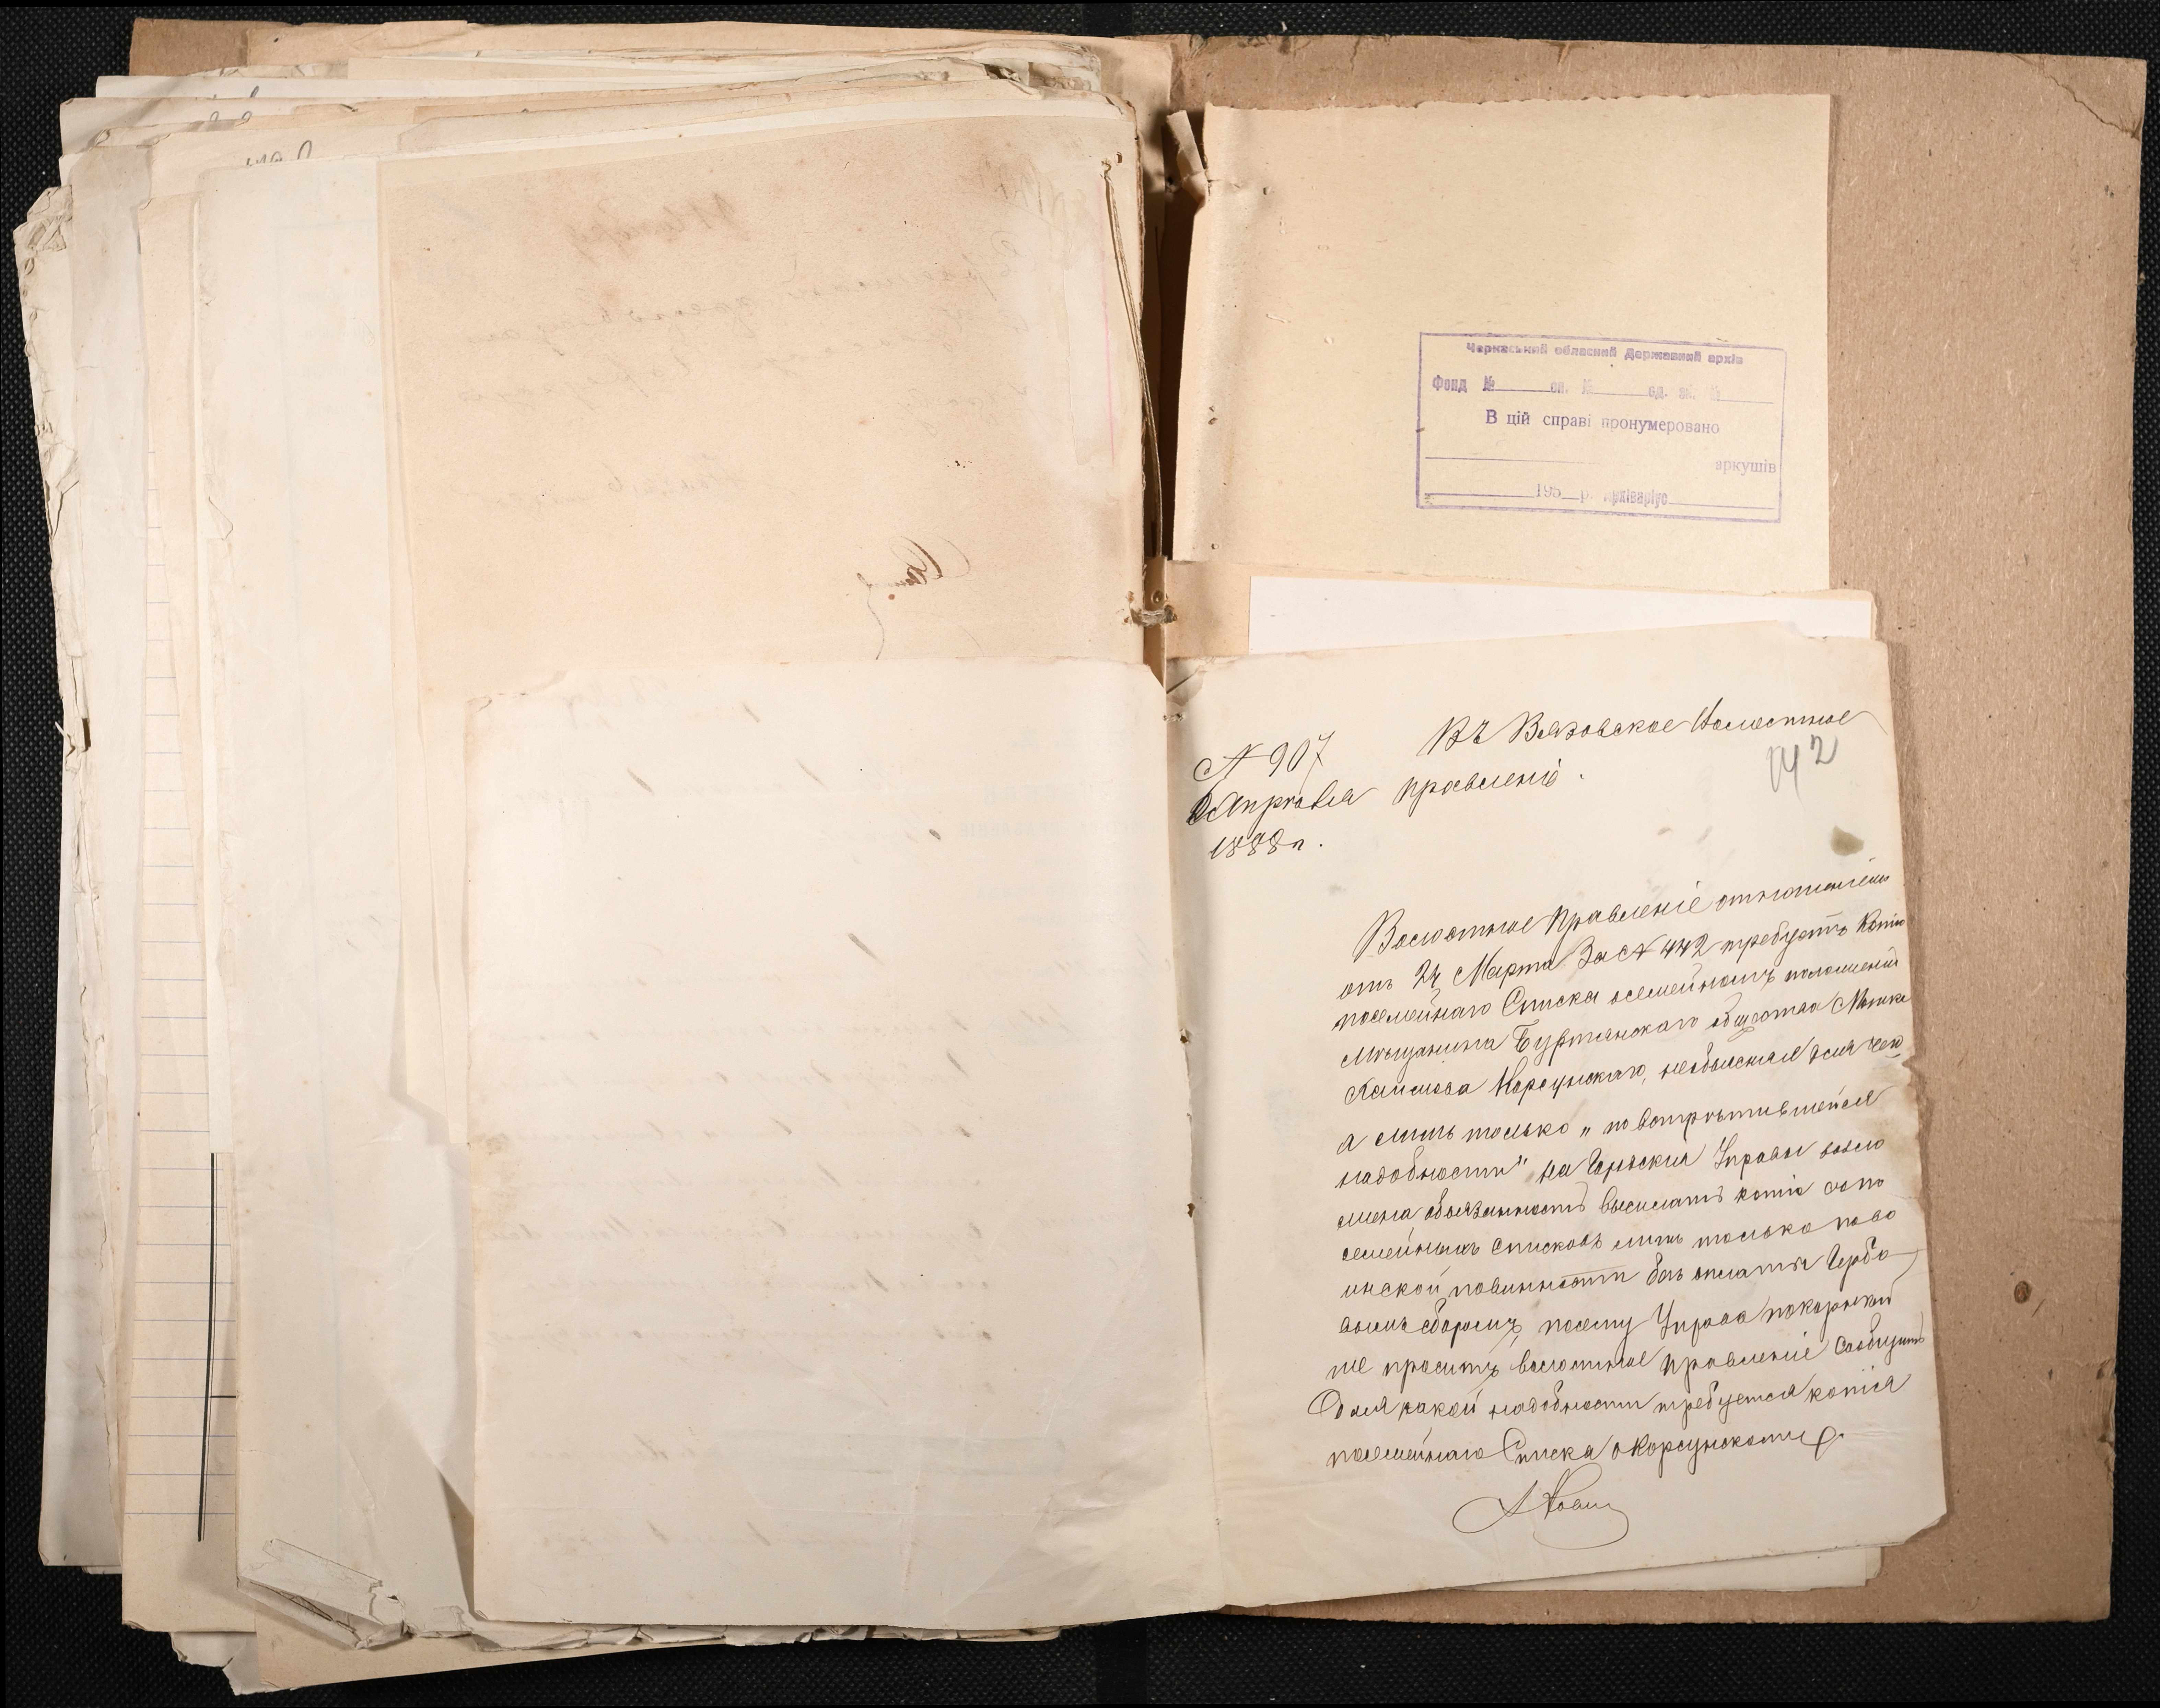 Черкаський обласний Державний архів
Фонд № оп. № од. зб. №
В цій справі пронумеровано
аркушів
195 р. Архіваріус
Въ Вязовское Волостное
N 907
Апрѣля Правленіе.
1888 г.
142
Волостное Правленіе отношеніемъ
отъ 24 Марта За N 442 требуетъ Копію
посемейнаго Списка о семейномъ положеніи
мѣщанина Буртянскаго общества Мошка
Корсунскаго, необъясняя для чего
а лишь только „по встрѣтившейся
надобности" на Городскія Управы возло
жена обязанность высылать копіи съ по
семейныхъ списковъ лишь только по во
инской повинности безъ оплаты Гербо
вымъ сборомъ, посему Управа покорнѣй
ше проситъ волостное Правленіе сообщить
Для какой надобности требуется копія
посемейнаго Списка о Корсунскомъ.